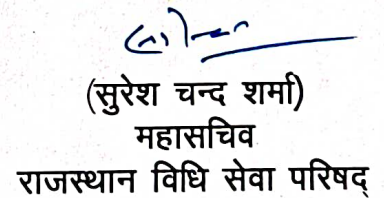 (सुरेश चन्द शर्मा)
महासचिव
राजस्थान विधि सेवा परिषद्